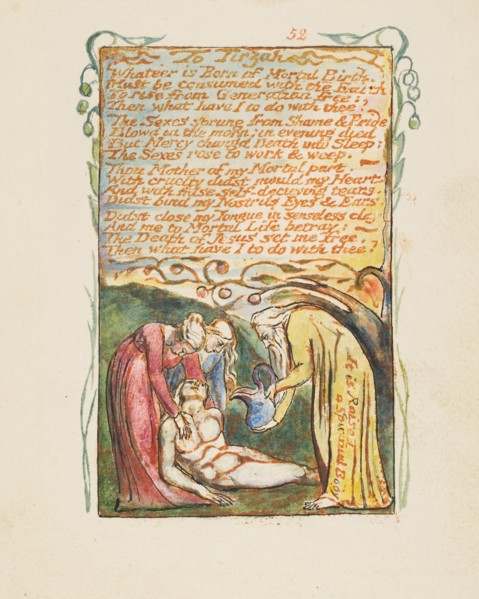 52
To Tirzah
Whate'er is Born of Mortal Birth,
Must be consumed with the Earth
To rise from Generation free;
Then what have I to do with thee?
The Sexes sprung from Shame & Pride
Blow'd in the morn; in evening died
But Mercy changd Death into Sleep;
The Sexes rose to work & weep.
Thou Mother of my Mortal part.
With cruelty didst mould my Heart.
And with false self-decieving tears.
Didst bind my Nostrils Eyes & Ears.
Didst close my Tongue in senseless clay
And me to Mortal Life betray:
The Death of Jesus set me free,
Then what have I to do with thee?
It is Raised
a Spiritual Body